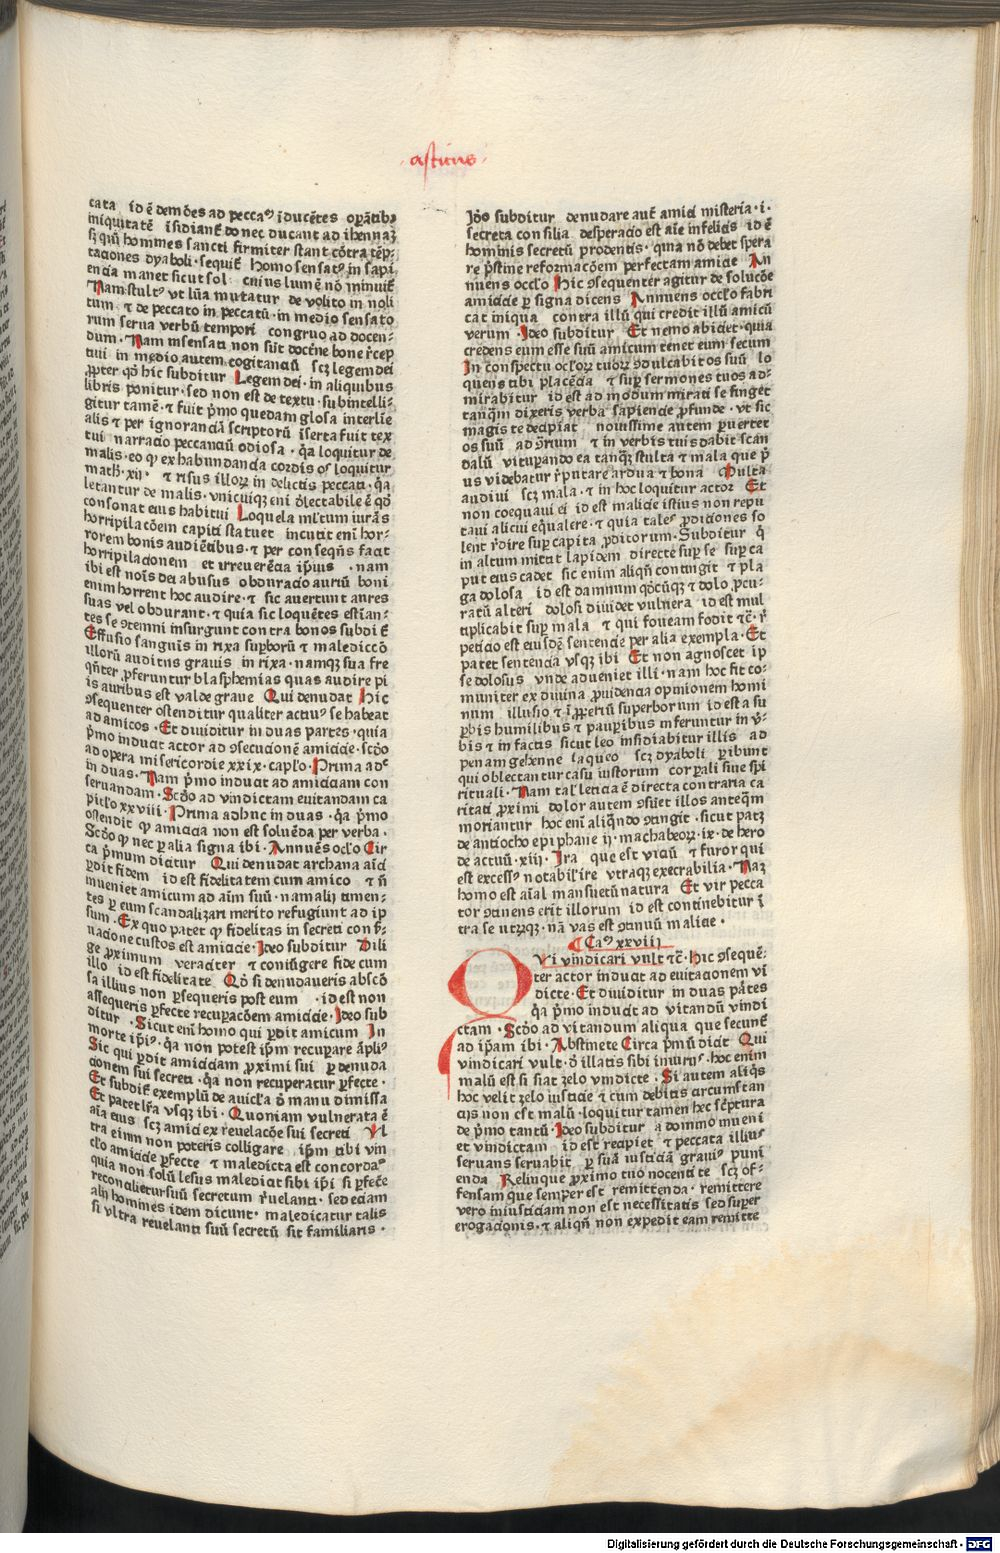 ·asticus·
cata id ē demōes ad peccaꝰ īducētes oꝑātibꝰ
iniquitatē īsidianť donec ducant ad ihennaꝫ
sꝫ qñ hommes sancti firmiter stant cōtra tēp-
taciones dyaboli · sequiť homo sensatꝰ in sapi
encia manet sicut sol cuius lumē nō minuiť
Nam stultꝰ vt lūa mutatur de volito in noli
tum · ⁊ de peccato in peccatū · in medio sensato
rum serua verbū tempori congruo ad docen-
dum · Nam insensati non sūt doctēne bone r̄cep
tiui in medio autem cogitanciū scꝫ legem dei
ꝓpter qď hic subditur Legem dei · in aliquibus
libris ponitur · sed non est de textu · subintelli-
gitur tamē · ⁊ fuit p̄mo quedam glosa interlīe
alis ⁊ per ignoranciā scriptorū īserta fuit tex
tui narracio peccanciū odiosa · q̄a loquitur de
malis · eo ꝙ ex habundancia cordis os loquitur
math · xij · ⁊ risus illoꝝ in delictis peccati · q̄a
letantur de malis · vnicuiqꝫ eni ďlectabile ē qď
consonat eius habitui Loquela mľtum iurās
horripilacōem capiti statuet incutit enī hor-
rorem bonis audiētibus · ⁊ per conseqñs facit
horripilacionem et irreuerēcia ip̄ius · nam
ibi est nois dei abusus obduracio auriū boni
enim horrent hoc audire · ⁊ sic auertunt aures
suas vel obdurant · ⁊ quia sic loquētes estīan-
tes se ꝯtemni insurgunt contra bonos subdiť
Effusio sanguīs in rixa suꝑborū ⁊ malediccō
illorū auditus grauis in rixa · namqꝫ sua fre
qñter ꝓferuntur blasphemias quas audire pi
is auribus est valde graue Qui denudat Hic
ꝯsequenter ostenditur qualiter actiuꝰ se habeat
ad amicos · Et diuiditur in duas partes · quia
p̄mo inducit actor ad ꝯsecucionē amicicie · scďo
ad opera misericordie xxix · capľo · Prima adᶜ
in duas · Nam p̄mo inducit ad amiciciam con
seruandam · Scďo ad vindictam euitandam ca
pitľo xxviii · Prima adhuc in duas · q̄a p̄mo
ostendit ꝙ amicicia non est soluēda per verba ·
Scďo ꝙ nec ꝑ alia signa ibi · Annuēs ocľo Cir
ca p̄mum dicitur Qui denudat archana aīci
ꝑdit fidem id est fidelitatem cum amico ⁊ ñ
inueniet amicum ad aīm suū · nam alij timen-
tes ꝑ eum scandalizari merito refugiunt ad ip
sum · Ex quo patet ꝙ fidelitas in secreti con f̄-
uacione custos est amicicie · Ideo subditur Dili
ge ꝓximum veraciter ⁊ coniūgere fide cum
illo id est fidelitate Qď si denudaueris abscō
sa illius non ꝑsequeris post eum · id est non
assequeris ꝑfecte recuꝑacōem amicicie · Ideo sub
ditur · Sicut enī homo qui ꝑdit amicum In
morte ip̄iꝰ · q̄a non potest ip̄m recuꝑare āpliꝰ
Sic qui ꝑdit amiciciam ꝓximi sui ꝑ denuda
cionem sui secreti · q̄a non recuperatur ꝑfecte ·
Et subdiť exemplū de auicľa ď manu dimissa
Et patet lr̄a vsqꝫ ibi · Quoniam vulnerata ē
aīa eius scꝫ amici ex reuelacōe sui secreti Vl
tra eium non poteris colligare ip̄m tibi vin
cľo amicicie ꝑfecte ⁊ maledicta est concordaꝰ
quia non solū lesus malediat sibi ip̄i si ꝑfecte
reconalietur suū secretum r̄uelanti · sed eciam
alij hommes idem dicunt · maledicatur talis
si vltra reuelanti suū secretū sit familiaris ·
Jďo subditur denudare autē amici misteria · i ·
secreta consilia desperacio est aīe infelicis id ē
hominis secretū prodentis · quia nō debet spera
re p̄stine reformacōem perfectam amicicie An
nuens occľo Hic ꝯsequenter agitur de solucōe
amicicie ꝑ signa dicens Annuens occľo fabri
cat iniqua contra illū qui credit illū amicū
verum · Ideo subditur Et nemo abiciet · quia
credens eum esse suū amicum tenet eum secum
In conspectu ocľoꝝ tuoꝝ ꝯdulcabit os suū lo
quens tibi placēcia ⁊ suꝑ sermones tuos ad-
mirabitur id est ad modum mirati se finget
tanq̄m dixeris verba sapiencie ꝓfunde · vt sic
magis te decipiat nouissime autem ꝑuertet
os suū ad ꝯ̄rium ⁊ in verbis tuis dabit scan
dalū vituꝑando ea tanqꝫ stulta ⁊ mala que p̄
us videbatur r̄putare ardua ⁊ bona Multa
audiui scꝫ mala · ⁊ in hoc loquitur actor Et
non coequaui ei id est malicie istius non repu
taui alicui eq̄ualere · ⁊ quia tales ꝓdiciones so
lent r̄dire suꝑ capita ꝓditorum · Subditur q̄
in altum mittit lapidem directe suꝑ se suꝑ ca
put eius cadet sic enim aliqñ contingit ⁊ pla
ga dolosa id est damnum qďcūqꝫ ⁊ dolo ꝓcu-
ratū alteri dolosi diuidet vulnera id est mul
tiplicabit suꝑ mala ⁊ qui foueam fodit ⁊c̄ · r̄
peticio est eiusdē sentencie per alia exempla · Et
patet sentencia vsqꝫ ibi Et non agnoscet ip
se dolosus vnde adueniet illi · nam hoc fit co-
muniter ex diuina ꝓuidencia opinionem homi
num illusio ⁊ īꝓꝑiū superborum id est a su
ꝑbis humilibus ⁊ pauꝑibus inferuntur in v̄-
bis ⁊ in factis sicut leo insidiabitur illis ad
penam gehenne laqueo scꝫ dyaboli ꝑibunt
qui oblectantur casu iustorum corꝑali siue spi
rituali · Nam taľ leticia ē directa contraria ca
ritati ꝓximi dolor autem ꝯsūet illos anteq̄m
moriantur hoc enī aliqñdo ꝯtingit · sicut patꝫ
de antiocho epiphane ij · machabeoꝝ · ix · de hero
de actuū · xij · Ira que est viciū ⁊ furor qui
est excessꝰ notabilꝭ ire vtraqꝫ execrabilia · Naꝫ
homo est aīal mansuetū natura Et vir pecca
tor ꝯtinens erit illorum id est continebitur ī
tra se utrūqꝫ · nā vas est ꝯtinuū malicie ·
¶ Caᵐ xxviij
QVi vindicari vult ⁊c̄ · Hic ꝯsequē-
ter actor inducit ad euitacionem vi
dicte · Et diuiditur in duas pātes
q̄a p̄mo inducit ad vitandū vindi
ctam · Scďo ad vitandum aliqua que secunť
ad ip̄am ibi · Abstinete Circa p̄mū dicit Qui
vindicari vult · ď illatis sibi iniurijs · hoc enim
malū est si fiat zelo vindicte · Si autem aliq̄s
hoc velit zelo iusticie ⁊ cum debitis circumstan
cijs non est malū · loquitur tamen hec sc̄ptura
de p̄mo tantū · Ideo subditur a domino inueni
et vindictam id est recipiet ⁊ peccata illiuꝰ
seruans seruabit ꝑ suā iusticiā grauiꝰ puni
enda Relinque ꝓximo tuo nocenti te scꝫ of-
fensam que semper est remittenda · remittere
vero iniusticiam non est necessitatis sed super
erogacionis · ⁊ aliqñ non expedit eam remitte
Digitalisierung gefördert durch die Deutsche Forschungsgemeinschaft - DFG